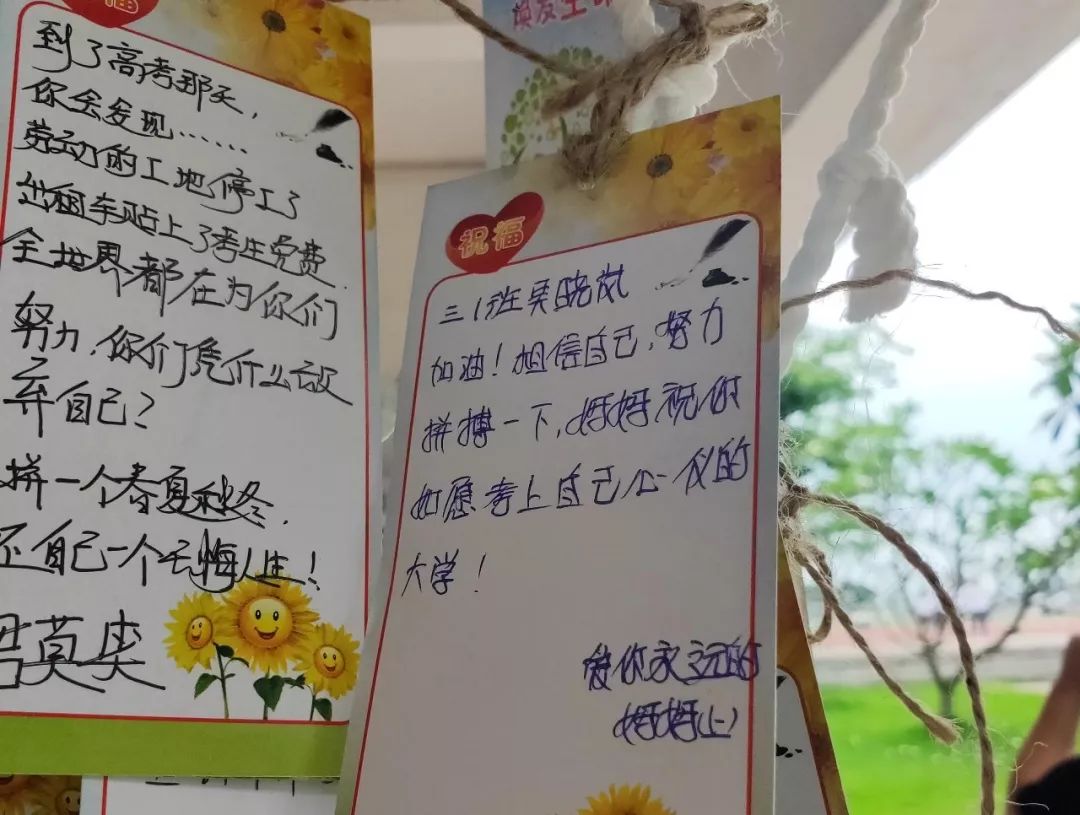 福
到了高考那天，
你会发现……
劳动的工地停工了
出租车贴上了考生免费
全世界都在为你们
努力，你们凭什么放
弃自己？
拼一个春夏秋冬，
还自己一个无悔人生！
君莫笑
焕发生
祝福
三1班吴晓岚
加油！相信自己，努力
拼搏一下，妈妈祝你
如愿考上自己心仪的
大学！
爱你永远的
妈妈上